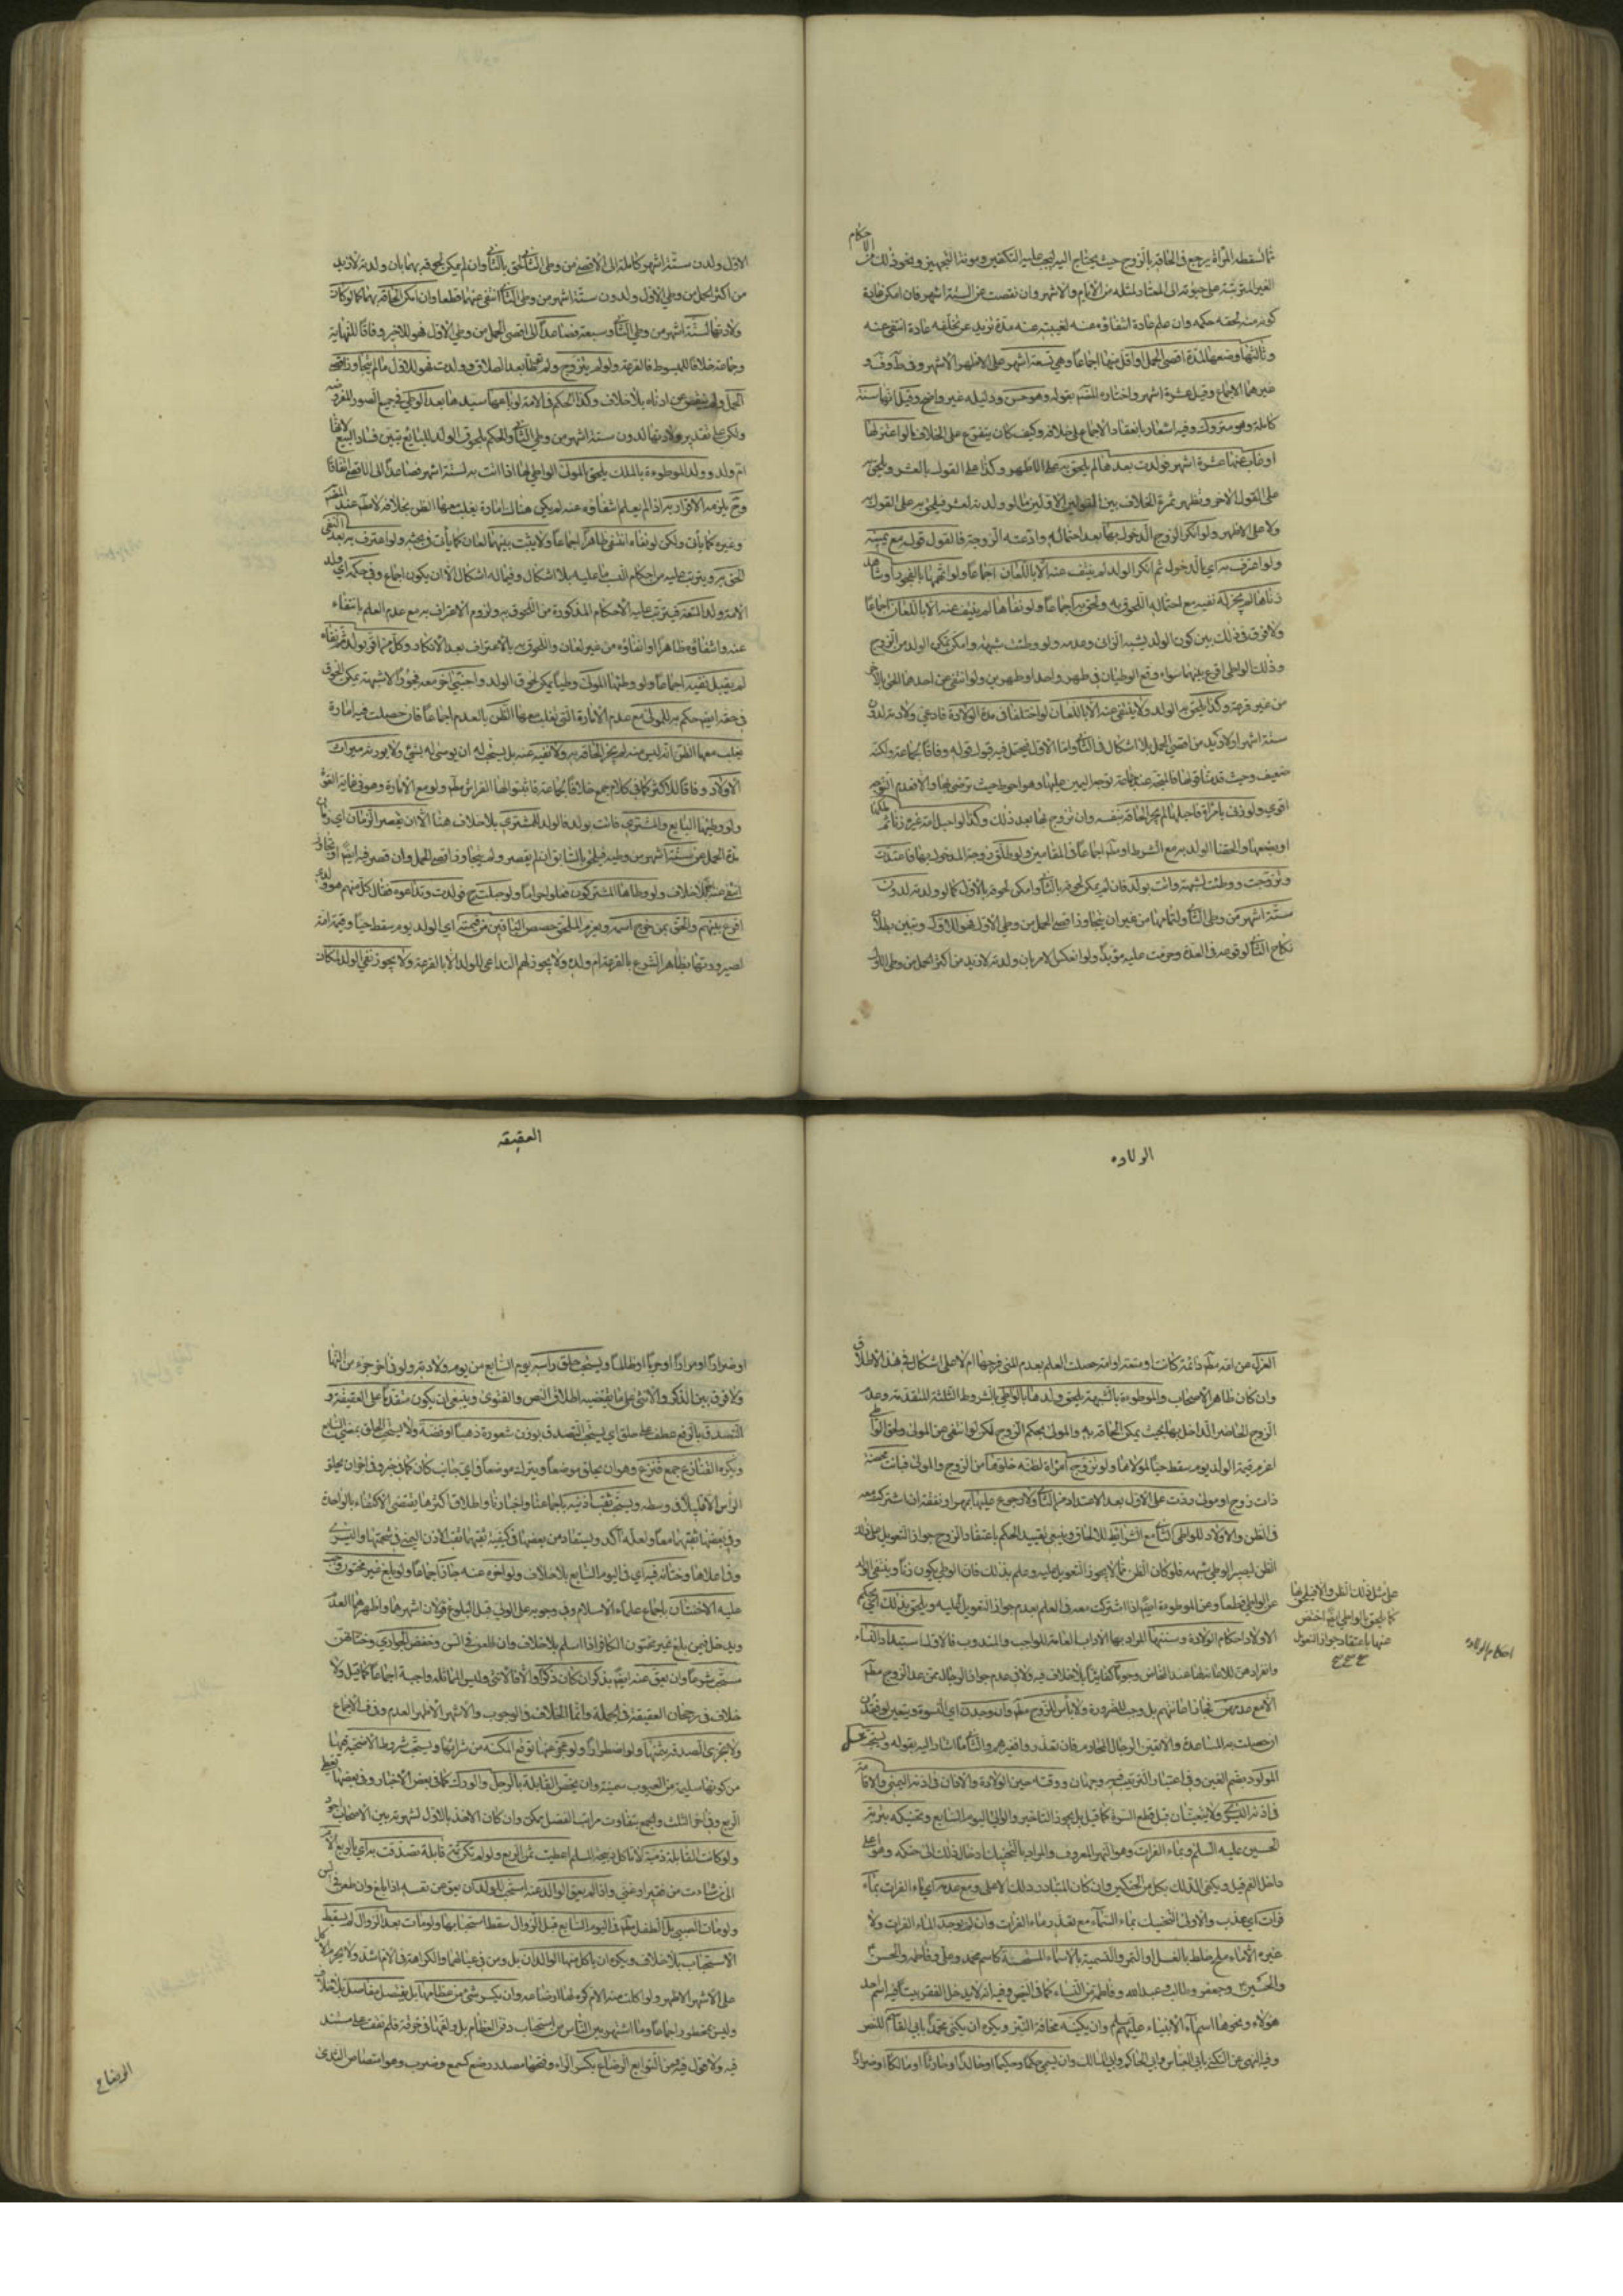 ما تسقطه المرأة يرجع في الحاقه بالزوج حيث يحتاج اليه ليجب عليه التكفين ومؤنة التجهيز ونحو ذلك من الاحكام
الغير المترتبة على حيوته الى المعتاد لمثله من الايام والاشهر وان نقصت عن الستة اشهر فان امكن عادة
كونه منه لحقه حكمه وان علم عادة انتفاؤه عنه لغيبته عنه مدة تزيد عن تخلقه عادة انتفى عنه
وثالثها وضعها لمدة اقصى الحمل او اقل منها اجماعا وهي تسعة اشهر على الاظهر الاشهر وفي
غيرهما الاجماع وقيل عشرة اشهر واختاره المصنف بقوله وهو حسن ودليله غير واضح وقيل انها سنة
كاملة وهو متروك وفيه اشعار بانعقاد الاجماع على خلافه وكيف كان يتفرع على الخلاف ما لو اعتزلها
او غاب عنها عشرة اشهر فولدت بعدها لم يلحق به على الاظهر وكذا على القول بالعشر ويلحق به
على القول الاخر وتظهر ثمرة الخلاف بين القولين الاولين ما لو ولدته لعشر فيلحق به على القول به
ولا على الاظهر ولو انكر الزوج الدخول بها بعد احتماله وادعته الزوجة فالقول قوله مع يمينه
ولو اعترف به اي بالدخول ثم انكر الولد لم ينتف عنه الا باللعان اجماعا ولو اتهمها بالفجور او شاهد
زناها لم يجز له نفيه مع احتماله اللحوق به ويلحق به اجماعا ولو نفاها لم ينتف عنه الا باللعان اجماعا
ولا فرق في ذلك بين كون الولد يشبه الزاني وعدمه ولو وطئت شبهة وامكن تكون الولد من الزوج
وذلك الواطي اقرع بينهما سواء وقع الوطيان في طهر واحد او طهرين ولو انتفى عن احدهما لحق بالاخر
من غير قرعة وكذا يلحق به الولد ولا ينتفى عنه الا باللعان لو اختلفا في مدة الولادة فادعى ولادته لدون
ستة اشهر او لازيد من اقصى الحمل بلا اشكال في الثاني واما الاول فيحتمل فيه قول قوله وفاقا لجماعة ولكنه
ضعيف وحيث قدمنا قولها
اقوى ولو زنى بامرأة فاحبلها لم يجز الحاقه بنفسه وان تزوج بها بعد ذلك وكذا لو احبل امة غيره زنا ثم ملكها
والحقنا الولد به مع الشرط او مطلقا اجماعا في المقامين ولو طلق زوجته المدخول بها فاعتدت
وتزوجت ووطئت لشبهة واتت بولد فان لم يمكن لحوقه بالثاني وامكن لحوقه بالاول كما لو ولدته لدون
ستة اشهر من وطي الثاني ولتمامها من غير ان يتجاوز اقصى الحمل من وطي الاول فهو للاول وتبين بطلان
نكاح الثاني لوقوعه في العدة وحرمت عليه مؤبدا ولو انعكس الامر بان ولدته لازيد من اكثر الحمل من وطي الاول
الاول ولدون ستة اشهر كاملة الى الاقصى من وطي الثاني لحق بالثاني وان لم يمكن لحوقه بهما بان ولدته لازيد
من اكثر الحمل من وطي الاول ولدون ستة اشهر من وطي الثاني انتفى عنهما قطعا وان امكن الحاقه بهما كما لو كانت
ولادتها لستة اشهر من وطي الثاني وتسعة فصاعدا الى اقصى الحمل من وطي الاول فهو للاخير وفاقا للنهاية
وجماعة خلافا للمبسوط فالقرعة ولو لم يتزوج ولم توطأ بعد الطلاق وولدت فهو للاول ما لم يتجاوز اقصى
الحمل ولم ينقص عن ادناه بلا خلاف وكذا الحكم في الامة لو باعها سيدها بعد الوطي في جميع الصور المفروضة
ولكن على تقدير ولادتها لدون ستة اشهر من وطي الثاني والحكم بلحوق الولد للبايع تبين فساد البيع لانها
ام ولد وولد الموطوءة بالملك يلحق بالمولى الواطي لها اذا اتت به لستة اشهر فصاعدا الى الاقصى اتفاقا
وح يلزمه الاقرار به اذا لم يعلم انتفاؤه عنه ولم يكن هناك امارة يغلب معها الظن بخلافه لا مطلقا عند المصنف
وغيره كما يأتي ولكن لو نفاه انتفى ظاهرا اجماعا ولا يثبت بينهما لعان كما يأتي في بحثه ولو اعترف به بعد النفي
لحق به ويترتب عليه من احكام النسب ما عليه بلا اشكال وفيما له اشكال الا ان يكون اجماع وفي حكمه اي ولد
الامة ولد المتعة فيترتب عليه الاحكام المذكورة من اللحوق به ولزوم الاعتراف به مع عدم العلم بانتفاء
عنه وانتفاؤه ظاهرا لو انتفاؤه من غير لعان واللحوق به بالاعتراف بعد الانكار وكل من اقر بولد ثم نفاه
لم يقبل نفيه اجماعا ولو وطئها المولى وطيا يمكن لحوق الولد واجنبي اخر معه فجورا لا شبهة يمكن اللحوق
في حقه ايضا حكم به للمولى مع عدم الامارة التي يغلب معها الظن بالعدم اجماعا فان حصلت فيه امارة
يغلب معها الظن انه ليس منه لم يجز الحاقه به ولا نفيه عنه بل يستحب له ان يوصي له بشيء ولا يورثه ميراث
الاولاد وفاقا للاكثر كما في كلام جمع خلافا لجماعة فاثبتوا لها الفراش مطلقا ولو مع الامارة وهو في غاية القوة
ولو وطئها البايع والمشتري فاتت بولد فالولد للمشتري بلا خلاف هنا الا ان يقصر الزمان اي زمان
مدة الحمل عن ستة اشهر من وطيه فيلحق بالسابق ان لم يقصر ولم يتجاوز اقصى الحمل وان قصر فيه ايضا او تجاوز
انتفى عنه بلا خلاف ولو وطاها المشتركون فعلوا حراما ولو حبلت ح فولدت وتداعوه فقال كل منهم هو ولدي
اقرع بينهم والحق بمن خرج اسمه ويغرم الملحق حصص الباقين من قيمته اي الولد يوم سقط حيا وقيمة امه
لصيرورتها بظاهر الشرع بالقرعة ام ولده ولا يجوز لهم التداعي للولد الا بالقرعة ولا يجوز نفي الولد لمكان
الولاده
العزل عن امه مطلقا دائمة كانت او متعة او امة حصلت العلم بعدم المني فرجها ام لا على اشكال في هذا الاطلاق
وان كان ظاهر الاصحاب والموطوءة بالشبهة يلحق ولدها بالواطي بالشروط الثلثة المتقدمة وعدم
الزوج الحاضر الداخل بها بحيث يمكن الحاقه به والمولى بحكم الزوج لكن لو انتفى عن المولى ولحق الواطي
اغرم قيمة الولد يوم سقط حيا لمولاها ولو تزوج امرأة لظنه خلوها من الزوج والمولى فبانت محصنة
ذات زوج او مولى ردت على الاول بعد الاعتداد من الثاني ولا رجوع عليها بمهر او نفقة ان اشتركت معه
في الظن والاولاد للواطي الثاني مع الشرائط للالحاق وينبغي تقييد الحكم باعتقاد الزوج جواز التعويل على ذلك
الظن ليصير الوطي شبهة فلو كان الظن مما لا يجوز التعويل عليه وعلم بذلك فان الوطي يكون زنا وينتفى الولد
عن الواطي قطعا وعن الموطوءة ايضا اذا اشتركت معه في العلم بعدم جواز التعويل عليه ويلحق بذلك اي بحكم
الاولاد احكام الولادة وسننها المراد بها الاداب العامة للواجب والمندوب فالاول استبداد النساء
وانفرادهن للاعانة عند المخاض وجوبا كفائيا بلا خلاف فيه ولا في عدم جواز الرجال ممن عدا الزوج مطلقا
الا مع عدمهن فجاز اعانتهم بل وجب للضرورة ولا باس للزوج مطلقا وان وجدت اي النسوة ويتعين لو فقدن
ان حصلت به المساعدة والا فمن الرجال المحارم فان تعذر وا فغيرهم والثاني ما اشار اليه بقوله ويستحب غسل
المولود بضم الغين وفي اعتبار الترتيب فيه وجهان ووقته حين الولادة والاذان في اذنه اليمنى والاقامة
في اذنه اليسرى ولا ينبغيان قبل قطع السرة كما قيل بل يجوز التاخير والى اليوم السابع وتحنيكه بتربة
الحسين عليه السلام وبماء الفرات وهو النهر المعروف والمراد بالتحنيك ادخال ذلك الى حنكه وهو اعلى
داخل الفم قيل ويكفى الدلك بكل من الحنكين وان كان المتبادر دلك الاعلى ومع عدمه اي ماء الفرات بماء
فرات اي عذب والاولى التحنيك بماء السماء مع تعذر ماء الفرات وان لم يوجد الماء الفرات ولا
غيره الا ماء ملح خلط بالعسل او التمر والتسمية بالاسماء المستحسنة كاسم محمد وعلي وفاطمة والحسن
والحسين وجعفر وطالب وعبد الله وفاطمة من النساء كما في النص وفيه انه لا يدخل الفقر بيتا فيه اسم احد
هؤلاء ونحوها اسماء الانبياء عليهم السلام وان يكنيه مخافة النبز ويكره ان يكنى محمدا بابي القاسم للنص
وفيه النهي عن التكني بابي الحكم وابي مالك وان يسمى حكما وحكيما او خالدا او حارثا او مالكا او ضرارا
على مثل ذلك الظن والا فيلحق بها
كما يلحق بالواطي ايضا اختص
عنها باعتقاد جواز التعويل
احكام الولاده
العقيقه
او ضرارا او مرارا او حربا او ظالما ويستحب حلق رأسه يوم السابع من يوم ولادته ولو في اخر جزء من النهار
ولا فرق بين الذكر والانثى على ما يقتضيه اطلاق النص والفتوى وينبغي ان يكون متقدما على العقيقة و
التصدق بالرفع عطف على حلق اي يستحب التصدق بوزن شعره ذهبا او فضة ولا يستحب الحلق بمضي السابع
ويكره القنازع جمع قنزع وهو ان يحلق موضعا ويترك موضعا في اي جانب كان كما في خبر وفي اخر ان يحلق
الراس الا قليلا في وسطه ويستحب ثقب اذنيه باجماعنا واخبارنا واطلاق اكثرها يقتضي الاكتفاء بالواحدة
وفي بعضها ثقبهما معا ولعله آكد ويستفاد من بعضها في كيفية ثقبهما ثقب الاذن اليمنى في شحمتها واليسرى
وفي اعلاها وختانه فيه اي في اليوم السابع بلا خلاف ولو اخر عنه جاز اجماعا ولو بلغ غير مختون وجب
عليه الاختتان باجماع علماء الاسلام وفي وجوبه على الولي قبل البلوغ قولان اشهرهما واظهرهما العدم
ويدخل فيمن بلغ غير مختون الكافر اذا اسلم بلا خلاف وان طعن في السن وخفض الجواري وختانهن
مستحب شرعا وان يعق عنه ايضا بذكر ان كان ذكرا والا فالانثى وليس المماثلة واجبة اجماعا كما قيل ولا
خلاف في رجحان العقيقة في الجملة وانما الخلاف في الوجوب والاشهر الاظهر العدم وفي الاجماع
ولا يجزي الصدقة بثمنها ولو اضطرارا ولو عجز عنها توقع المكنة من شرائها ويستحب شروط الاضحية فيها
من كونها سليمة من العيوب سمينة وان يختص القابلة بالرجل والورك كما في بعض الاخبار وفي بعضها تعطى
الربع وفي اخر الثلث والجمع بتفاوت مراتب الفضل ممكن وان كان الاخذ بالاول لشهرته بين الاصحاب اجود
ولو كانت القابلة ذمية لا تاكل ذبيحة المسلم اعطيت ثمن الربع ولو لم تكن ثم قابلة تصدقت به اي بالربع الام
الى من شاءت من فقير او غني واذا لم يعق الوالد عنه استحب للولد ان يعق عن نفسه اذا بلغ وان طعن في السن
ولو مات الصبي بل الطفل مطلقا في اليوم السابع قبل الزوال سقط استحبابها ولو مات بعد الزوال لم يسقط
الاستحباب بلا خلاف ويكره ان ياكل منها الوالدان بل ومن في عيالهما والكراهة في الام اشد ولا يحرم الاكل
على الاشهر الاظهر ولو اكلت منه الام كره لها ارضاعه وان يكسر شيء من عظامها بل يفصل مفاصل بلا خلاف
وليس بمحظور اجماعا وما اشتهر بين الناس من استحباب دفن العظام بل ولفها في خرقة فلم نقف على مستند
فيه ولا قول فيه ومن التوابع الرضاع بكسر الراء وفتحها مصدر رضع كسمع وضرب وهو امتصاص الثدي
الرضاع